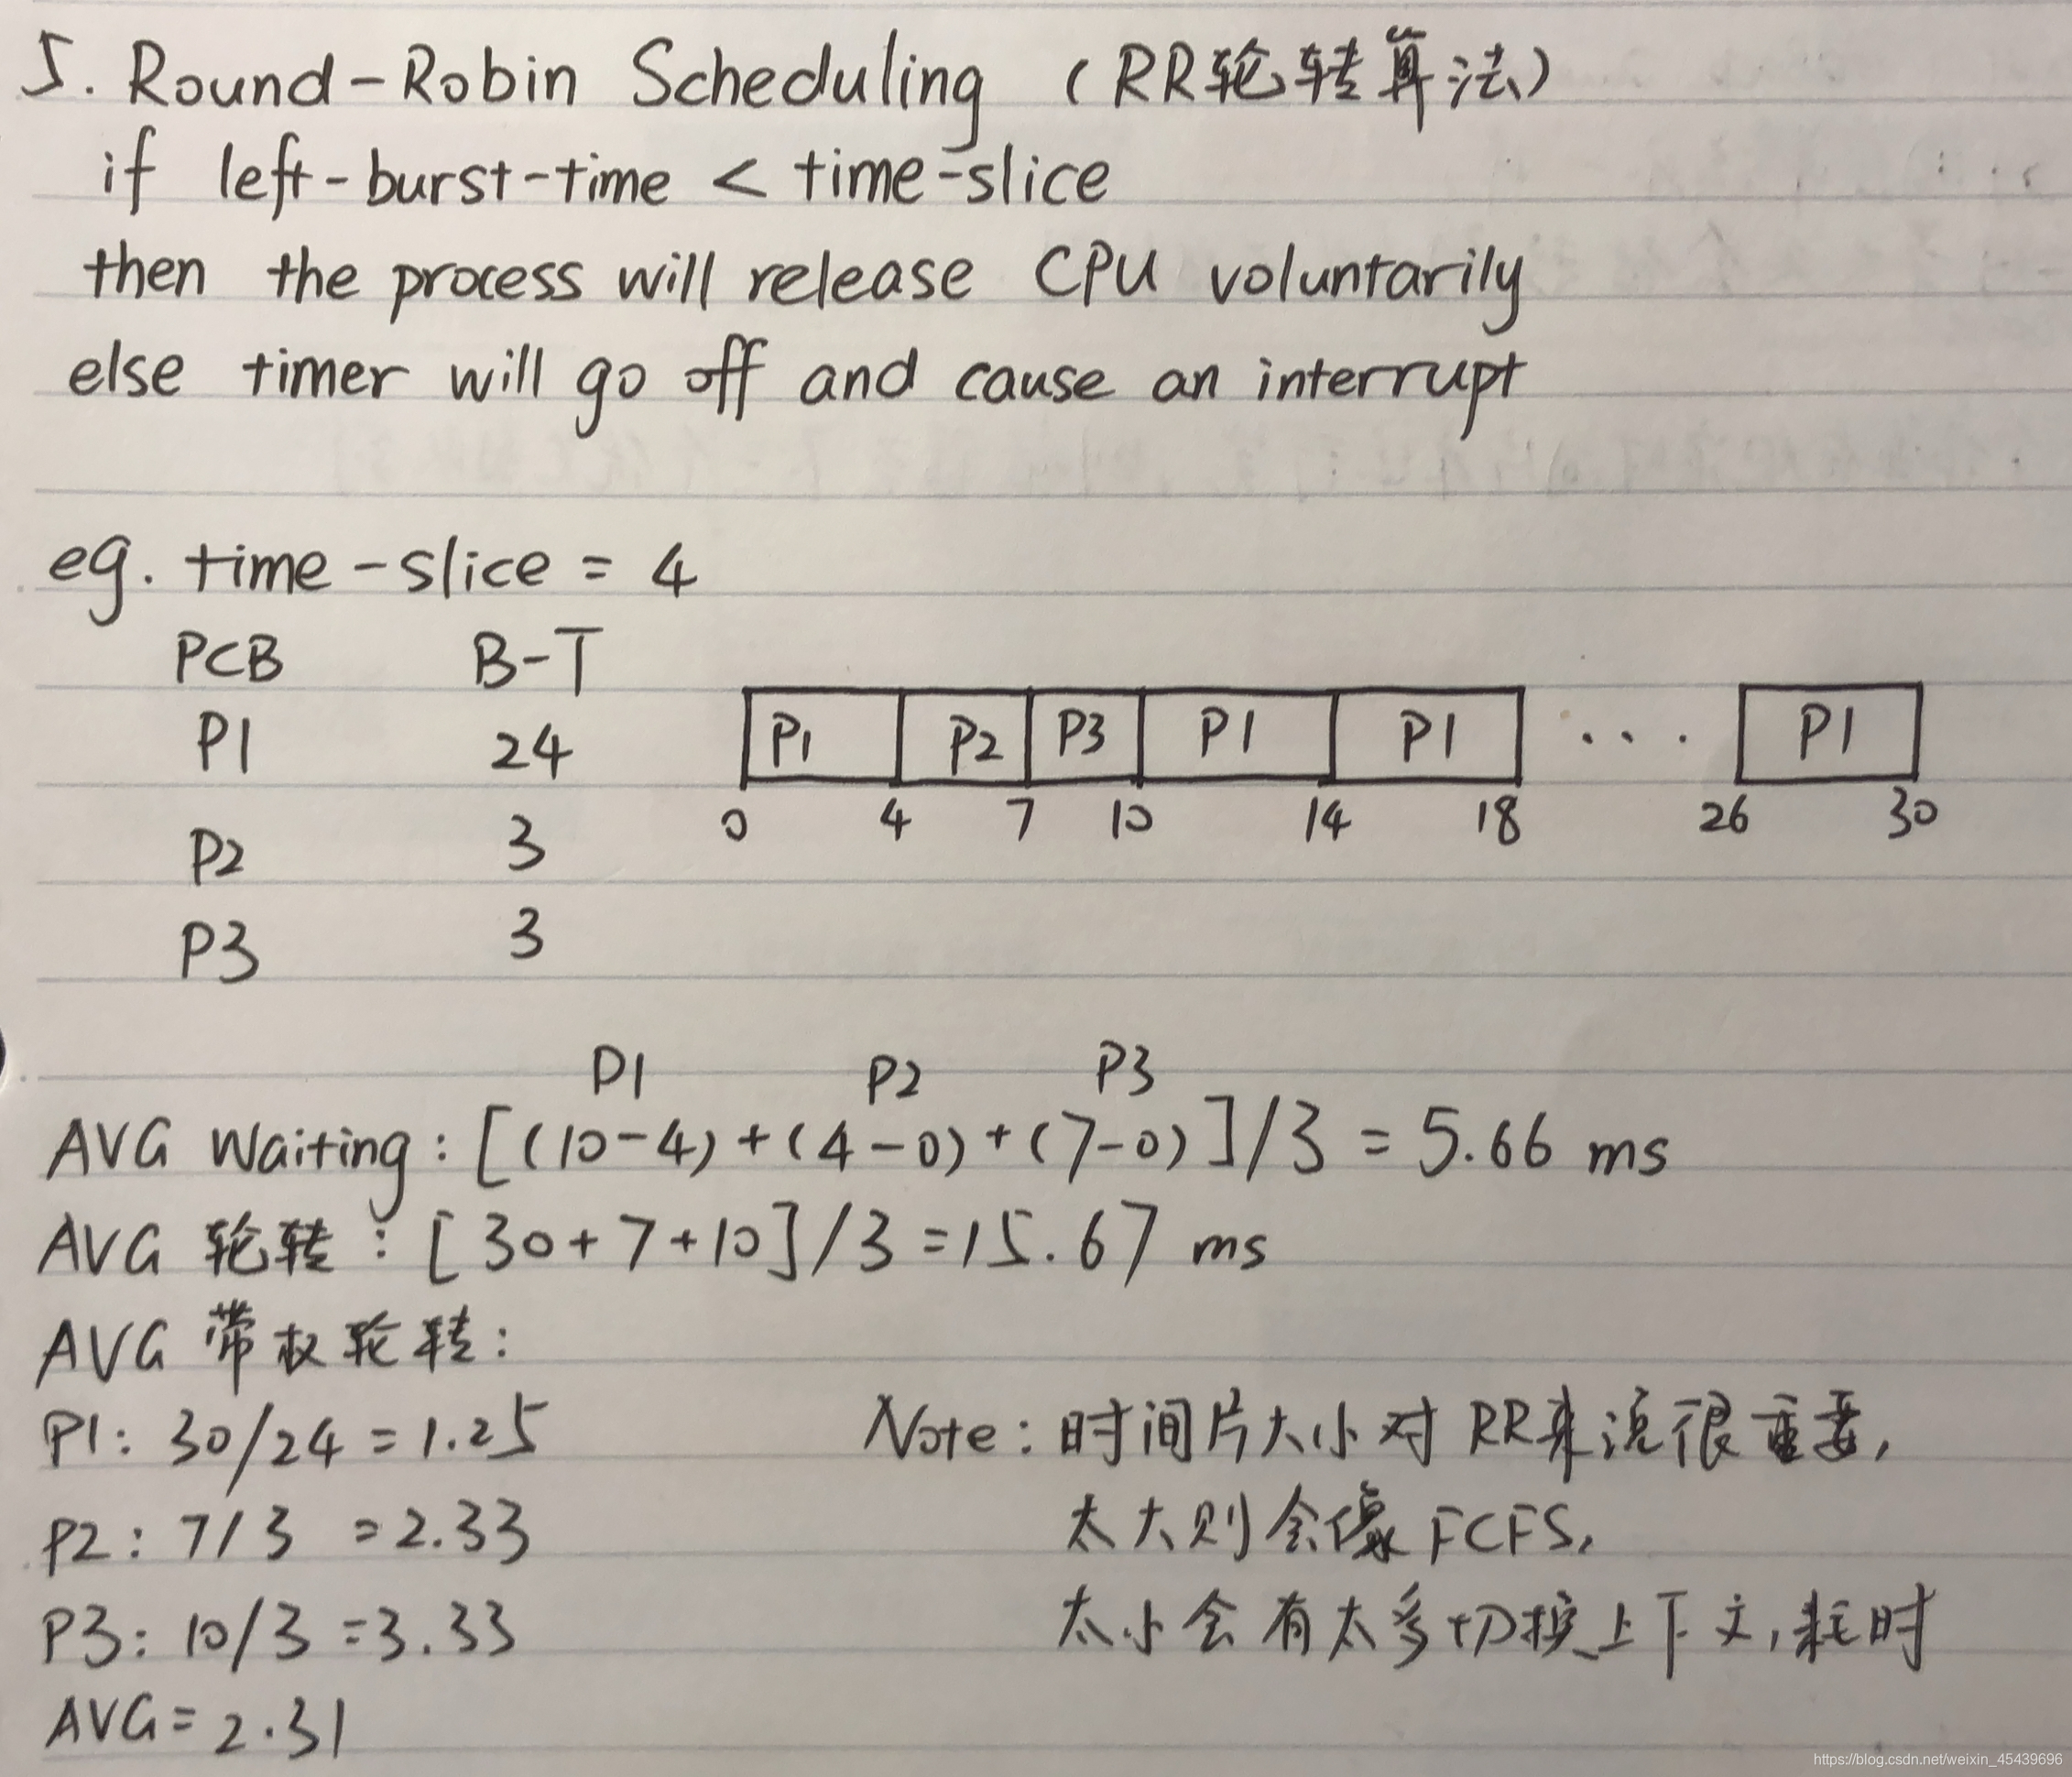 5. Round-Robin Scheduling (RR轮转算法)
if left-burst-time < time-slice
then the process will release CPU voluntarily
else timer will go off and cause an interrupt
eg. time-slice = 4
PCB B-T
P1 24
P2 3
P3 3
P1 P2 P3 P1 P1 ... P1
0 4 7 10 14 18 26 30
P1 P2 P3
AVG Waiting: [(10-4)+(4-0)+(7-0)]/3 = 5.66 ms
AVG 轮转: [30+7+10]/3=15.67 ms
AVG 带权轮转:
P1: 30/24 = 1.25
P2: 7/3 = 2.33
P3: 10/3 =3.33
AVG = 2.31
Note: 时间片大小对RR来说很重要,
太大则会像FCFS,
太小会有太多切换上下文,耗时
https://blog.csdn.net/weixin_45439696